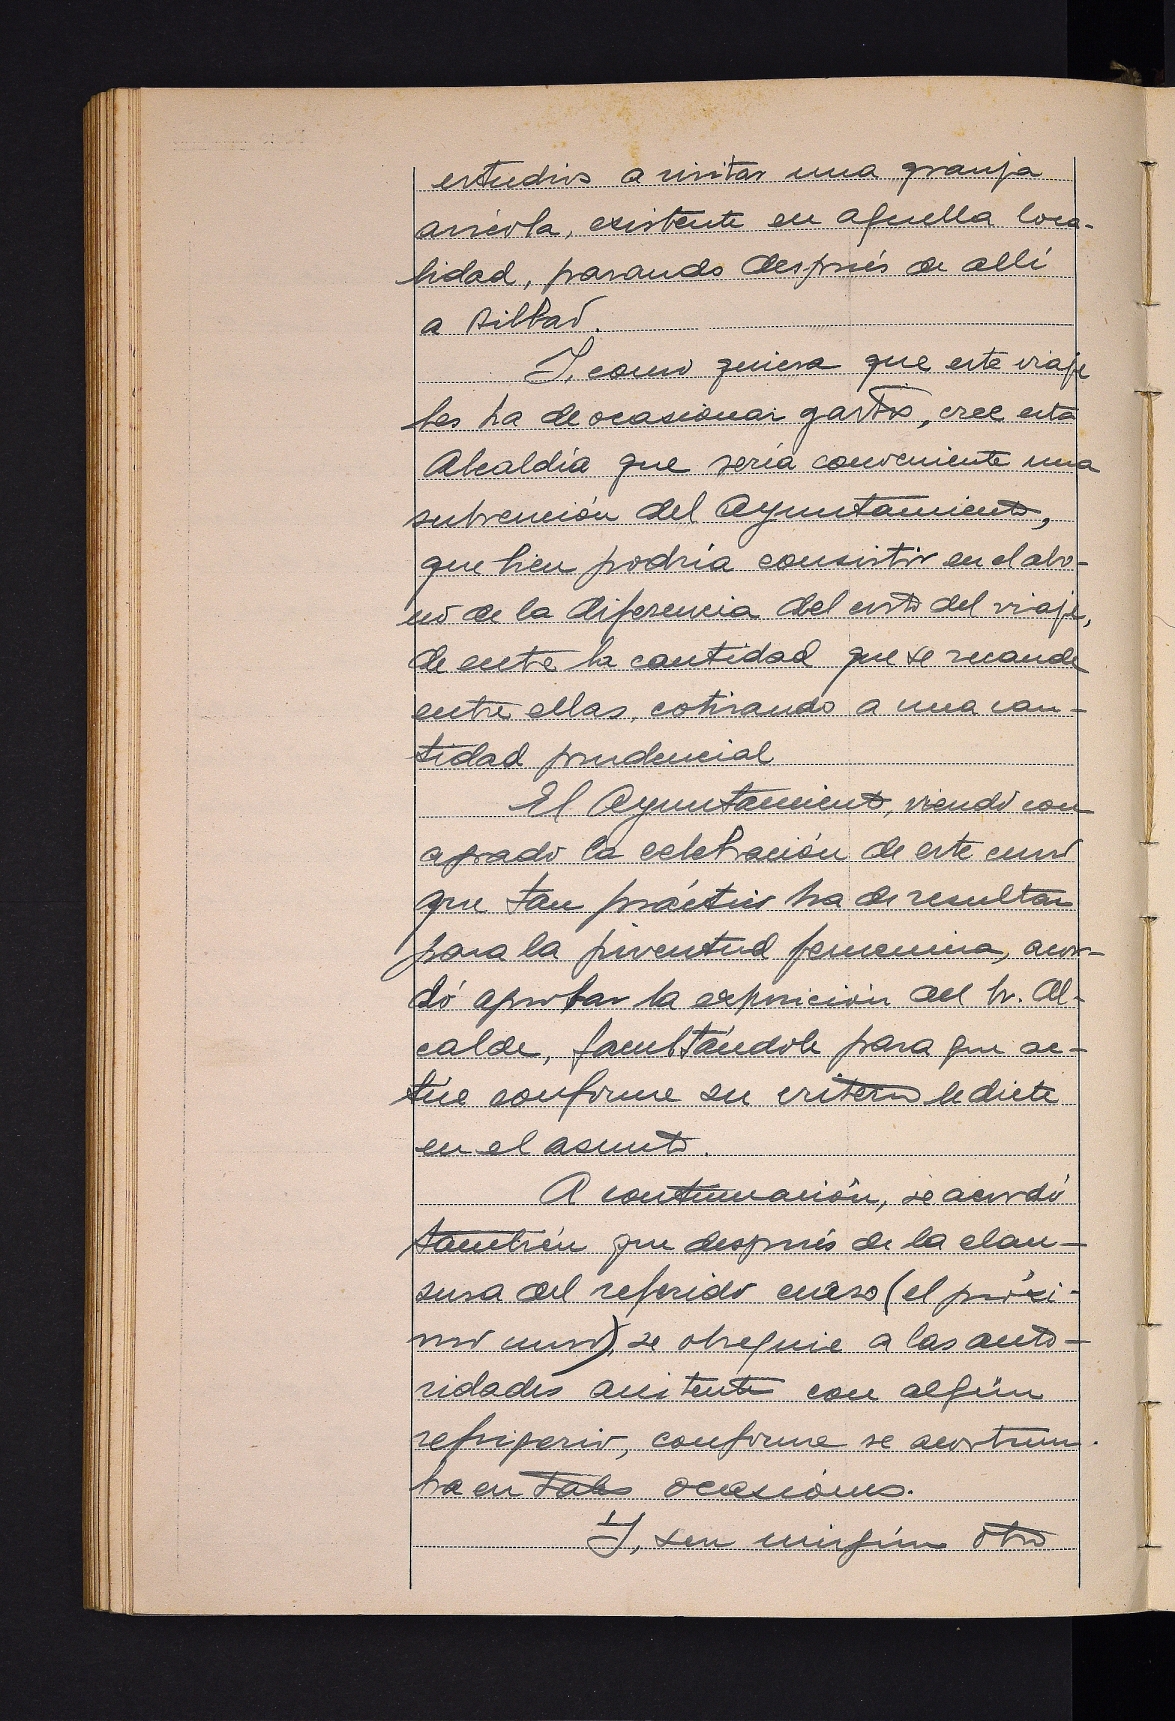 estudios a visitar una granja
avícola, existente en aquella loca-
lidad, pasando después de allí
a Bilbao.
Y, como quiera que este viaje
les ha de ocasionar gastos, cree esta
Alcaldía que sería conveniente una
subvención del Ayuntamiento,
que bien podría consistir en el abo-
no de la diferencia del costo del viaje,
de entre la cantidad que se recaude
entre ellas, cotizando a una can-
tidad prudencial
El Ayuntamiento, viendo con
agrado la celebración de este curso
que tan práctico ha de resultar
para la juventud femenina, acor-
dó aprobar la exposición del Sr. Al-
calde, facultándole para que ac-
túe conforme su criterio le dicte
en el asunto.
A continuación, se acordó
también que después de la clau-
sura del referido curso (el próxi-
mo curso), se obsequie a las auto-
ridades asistente con algún
refrigerio, conforme se acostum-
bra en tales ocasiones.
Y, sin ningún otro